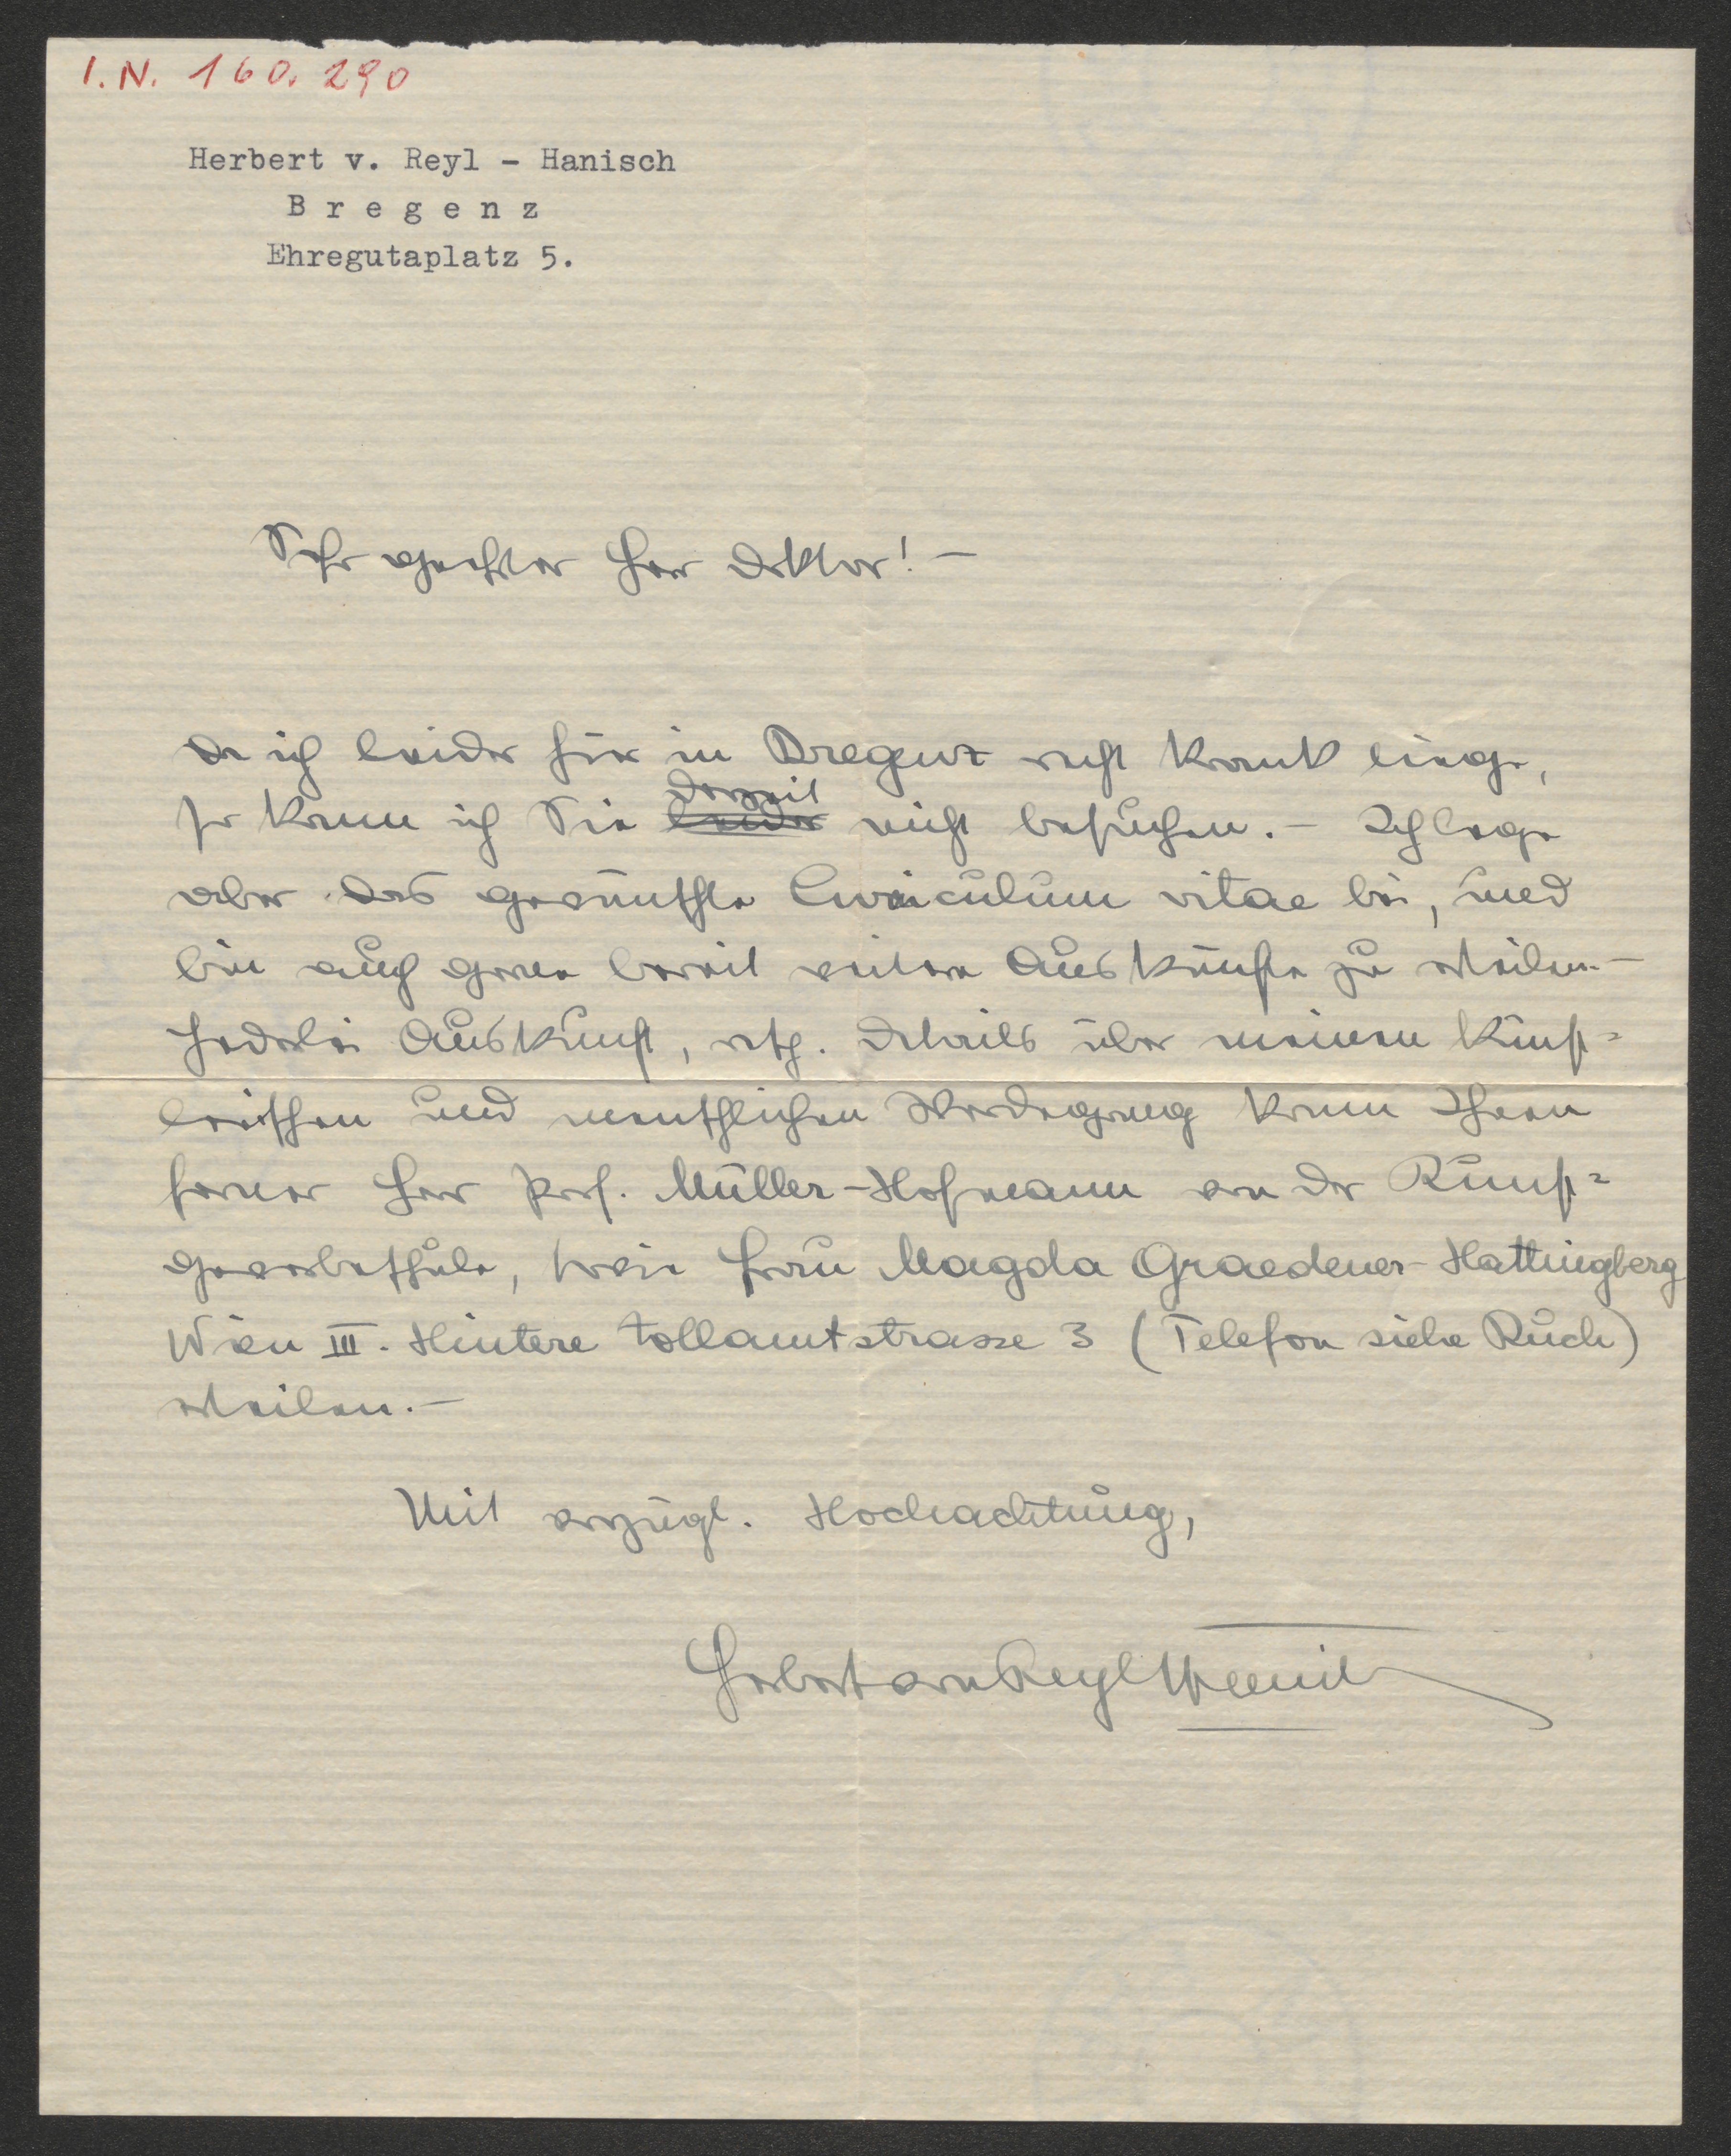 I.N. 160.290
Herbert v. Reyl - Hanisch
Bregenz
Ehregutaplatz 5.
Sehr geehrter Herr Doktor! –
Da ich leider hier in Bregenz recht krank liege,
derzeit
so kann ich Sie leider nicht besuchen. – Ich lege
aber das gewünschte Curiculum vitae bei, und
bin auch gerne bereit weitere Auskünfte zu erteilen. –
Jederlei Auskunft, resp. Details über meinen künst=
lerischen und menschlichen Werdegang kann Ihnen
ferner Herr Prof. Müller-Hofmann von der Kunst=
gewerbeschule, sowie Frau Magda Graedener-Hattingberg
Wien III. Hintere Zollamtstrasse 3 (Telefon siehe Buch)
erteilen. –
Mit vorzügl. Hochachtung,
Herbert von Reyl Hanisch